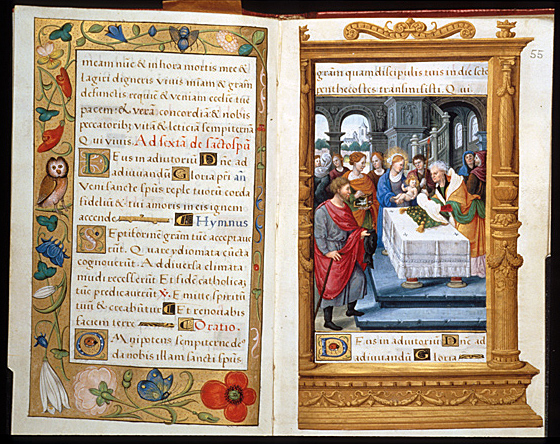 meam núc & in hora mortis mee &
largiri digneris vivis miam & gram
defunctis requie & veniam ecclie tue
pacem & vera concordia & nobis
peccatorib9 vita & leticia sempiterna
Qui vivis Ad sextā de sācto spū
Deus in adiutoriu Dne ad
adiuvandu Gloria pri an
Veni sancte spus reple tuoru corda
fideliu & tui amoris in eis ignem
accende Hymnus
Septiformē gram tunc acceptave
rūt. Quare ydiomata cucta
cognoverūt. Ad diversa climata
mudi recesserūt Et fide catholicā
tuc predicaverūt ℣. Emitte spiritu
tuū & creabutur Et renovabis
faciem terre Oratio.
Omnipotens sempiterne de9
da nobis illam sancti spus
55
gram quam discipulis tuis in die scte
penthecostes transmisisti. Qui
Deus in adiutoriu Dne ad
adiuvandu Gloria